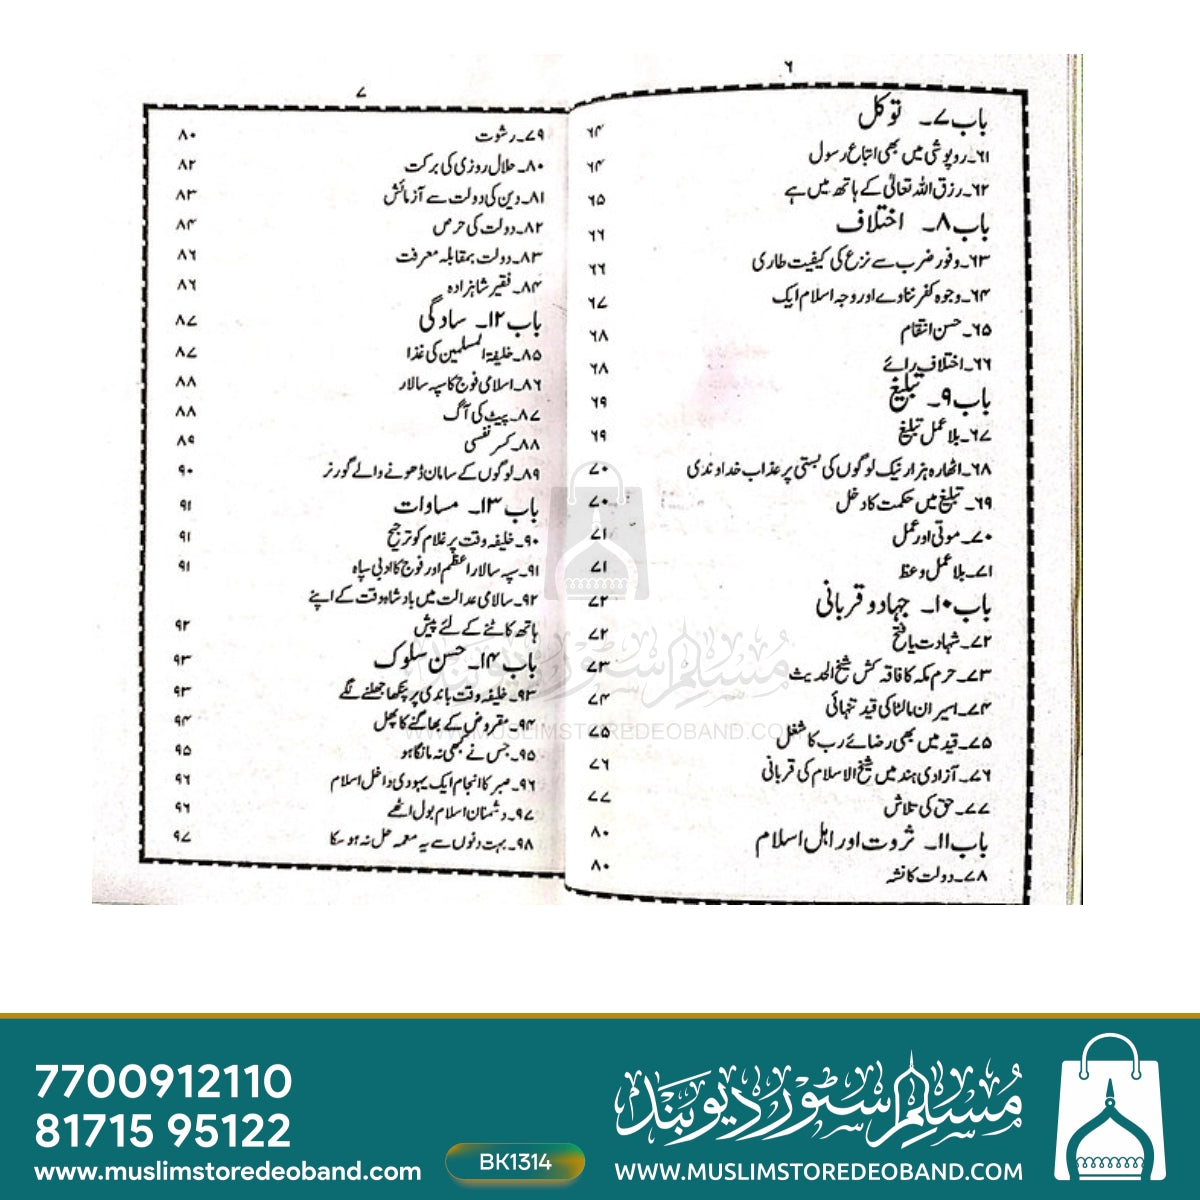 ۶
باب ۷۔ توکل ۶۴
۶۱۔ روپوشی میں بھی اتباع رسول ۶۴
۶۲۔ رزق اللہ تعالیٰ کے ہاتھ میں ہے ۶۵
باب ۸۔ اختلاف ۶۶
۶۳۔ وفور ضرب سے نزع کی کیفیت طاری ۶۶
۶۴۔ وجوہ کفر ننانوے اور وجہ اسلام ایک ۶۷
۶۵۔ حسن انتقام ۶۸
۶۶۔ اختلاف رائے ۶۸
باب ۹۔ تبلیغ ۶۹
۶۷۔ بلا عمل تبلیغ ۶۹
۶۸۔ اٹھارہ ہزار نیک لوگوں کی بستی پر عذاب خداوندی ۷۰
۶۹۔ تبلیغ میں حکمت کا دخل ۷۰
۷۰۔ موتی اور عمل ۷۱
۷۱۔ بلا عمل وعظ ۷۱
باب ۱۰۔ جہاد و قربانی ۷۲
۷۲۔ شہادت یا فتح ۷۲
۷۳۔ حرم مکہ کا فاقہ کش شیخ الحدیث ۷۳
۷۴۔ اسیران مالٹا کی قید تنہائی ۷۴
۷۵۔ قید میں بھی رضائے رب کا شغل ۷۵
۷۶۔ آزادی ہند میں شیخ الاسلام کی قربانی ۷۶
۷۷۔ حق کی تلاش ۷۷
باب ۱۱۔ ثروت اور اہل اسلام ۸۰
۷۸۔ دولت کا نشہ ۸۰
۷
۷۹۔ رشوت ۸۰
۸۰۔ حلال روزی کی برکت ۸۲
۸۱۔ دین کی دولت سے آزمائش ۸۳
۸۲۔ دولت کی حرص ۸۴
۸۳۔ دولت بمقابلہ معرفت ۸۶
۸۴۔ فقیر شاہزادہ ۸۶
باب ۱۲۔ سادگی ۸۷
۸۵۔ خلیفۃ المسلمین کی غذا ۸۷
۸۶۔ اسلامی فوج کا سپہ سالار ۸۸
۸۷۔ پیٹ کی آگ ۸۸
۸۸۔ کسر نفسی ۸۹
۸۹۔ لوگوں کے سامان ڈھونے والے گورنر ۹۰
باب ۱۳۔ مساوات ۹۱
۹۰۔ خلیفہ وقت پر غلام کو ترجیح ۹۱
۹۱۔ سپہ سالار اعظم اور فوج کا ادنی سپاہ ۹۱
۹۲۔ سالای عدالت میں بادشاہ وقت کے اپنے
ہاتھ کاٹنے کے لئے پیش ۹۲
باب ۱۴۔ حسن سلوک ۹۳
۹۳۔ خلیفہ وقت باندی پر پنکھا جھلنے لگے ۹۳
۹۴۔ مقروض کے بھاگنے کا پھل ۹۴
۹۵۔ جس نے کبھی نہ مانگا ہو ۹۵
۹۶۔ صبر کا انجام ایک یہودی داخل اسلام ۹۶
۹۷۔ دشمنان اسلام بول اٹھے ۹۶
۹۸۔ بہت دنوں سے یہ معمہ حل نہ ہو سکا ۹۷
مسلم سٹور دیوبند
WWW.MUSLIMSTOREDEOBAND.COM
7700912110
81715 95122
www.muslimstoredeoband.com
BK1314
مسلم سٹور دیوبند
WWW.MUSLIMSTOREDEOBAND.COM